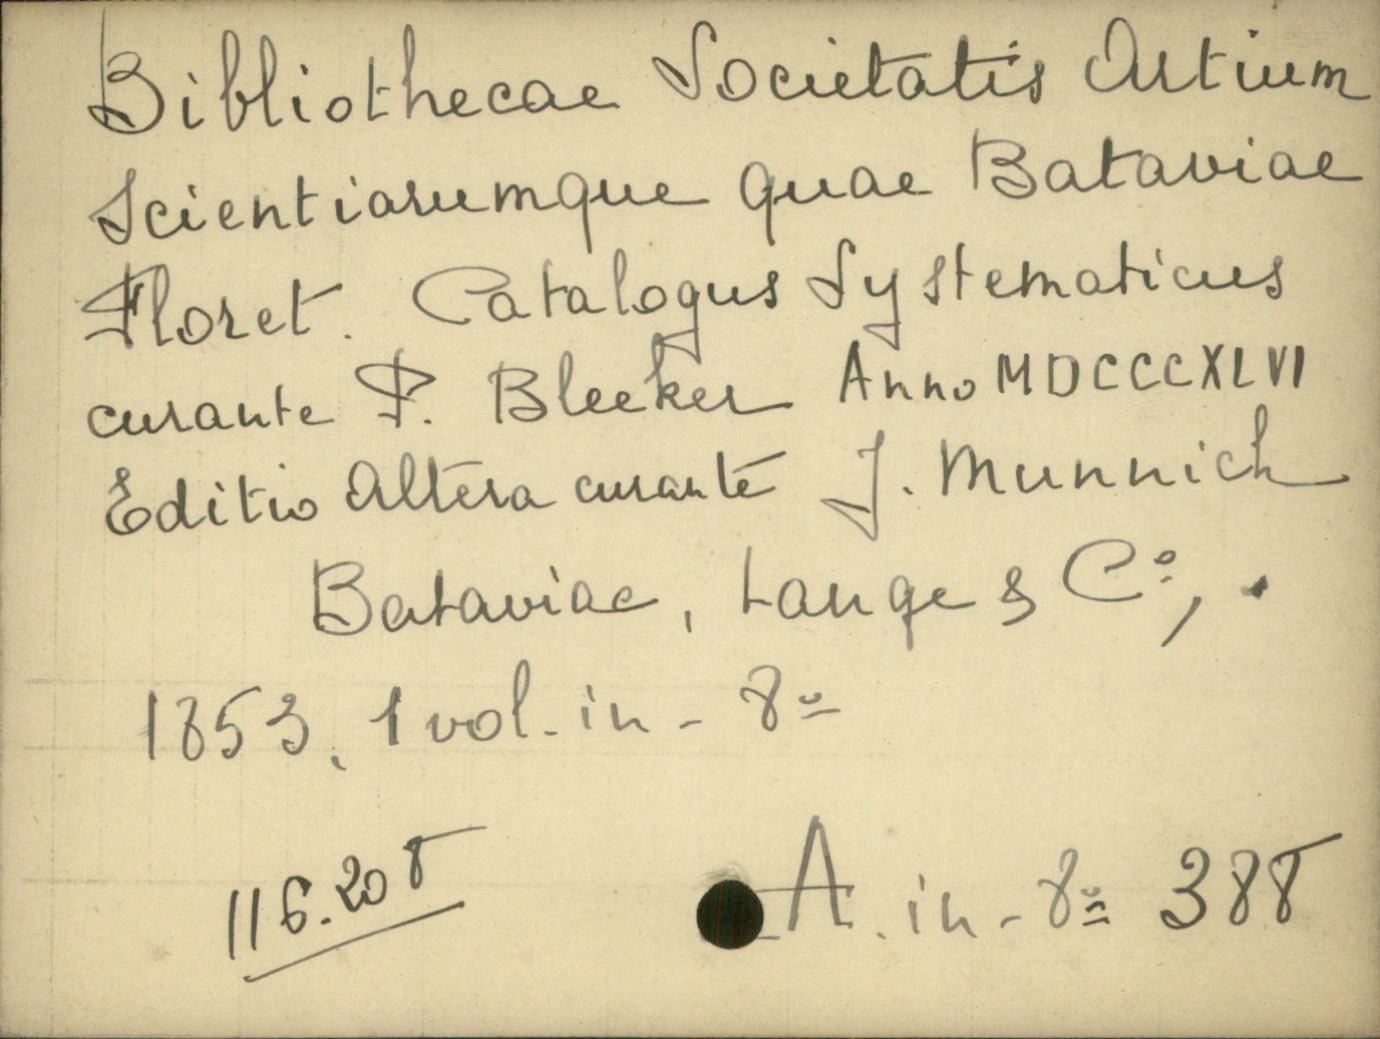 Bibliothecae Societatis Artium
Scientiarumque quae Bataviae
Floret. Catalogus Systematicus
curante P. Bleeker Anno MDCCCXLVI
Editio Altera curante J. Munnich
Bataviae, Lange & Cº,.
1853, 1 vol. in-8º
116.208
A. in-8º 388